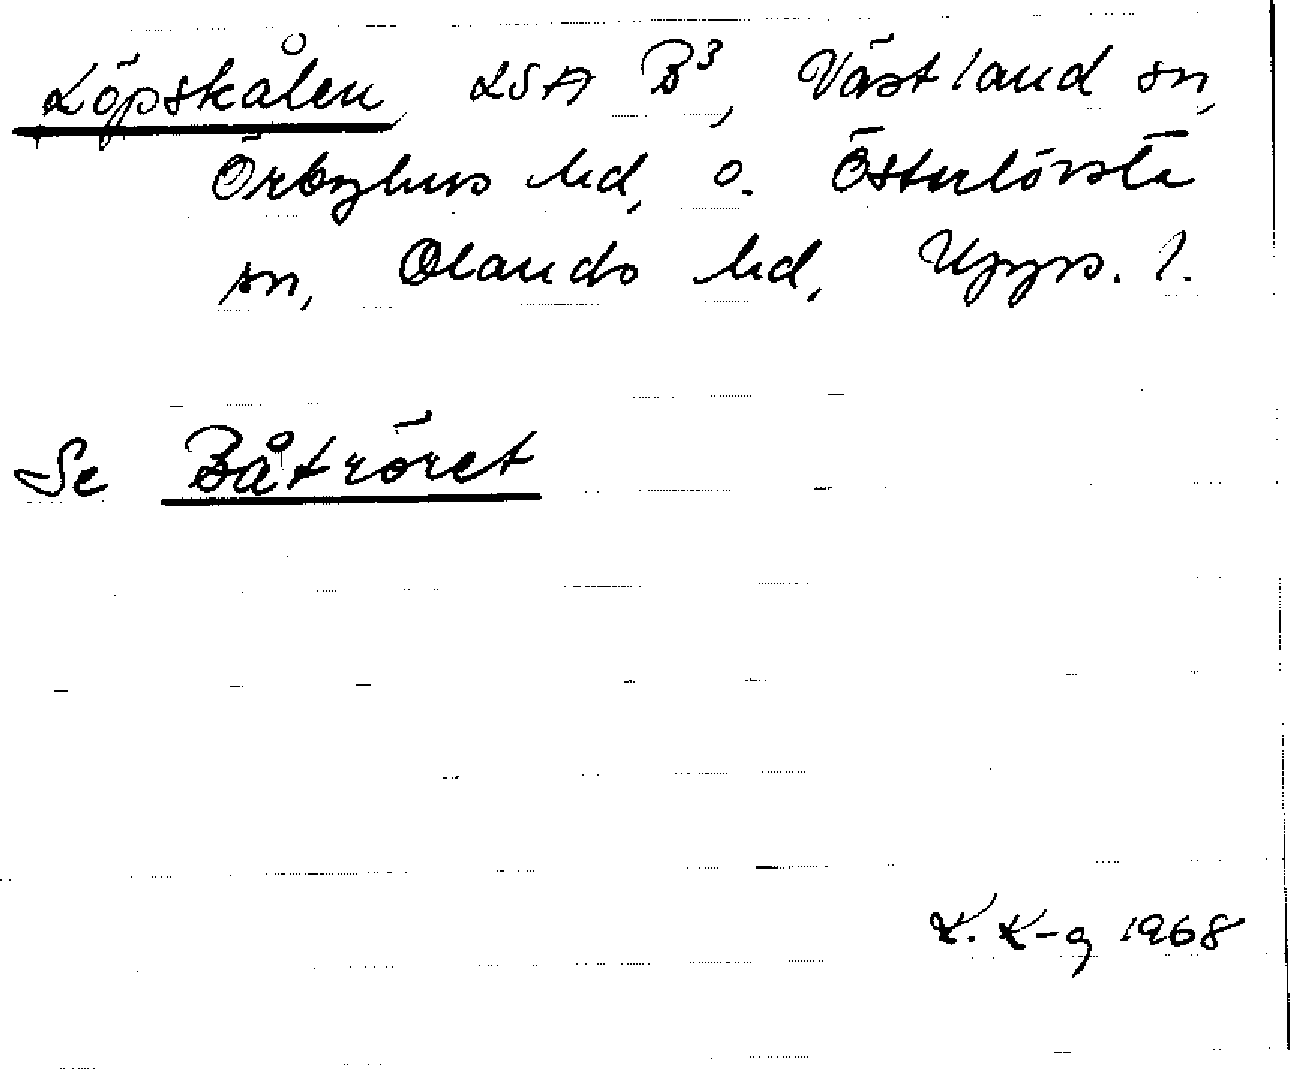 Löpskålen, LSA B³, Västland sn,
Örbyhus hd, o. Österlövsta
sn, Olands hd, Upps. l.
Se Båtröret
K. K-g 1968